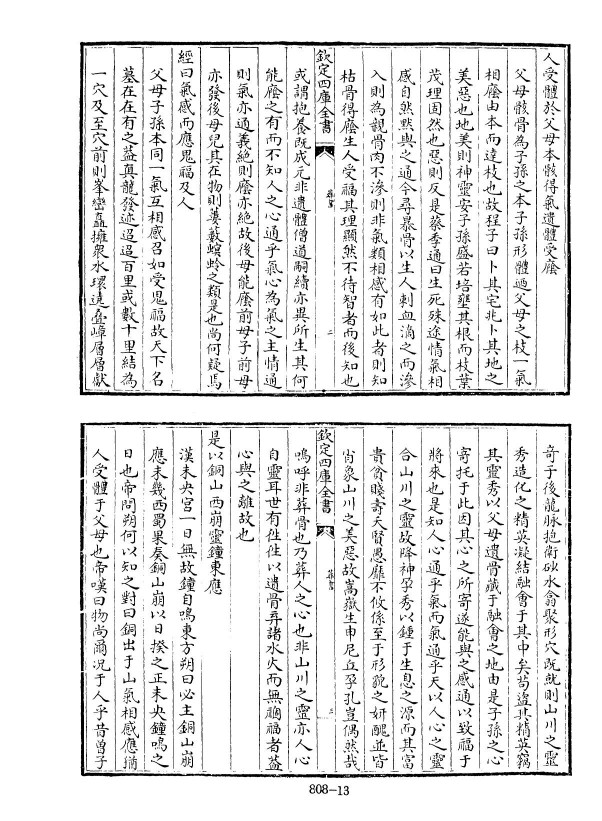 人受體於父母本骸得氣遺體受廕
父母骸骨為子孫之本子孫形體廼父母之枝一氣
相廕由本而達枝也故程子曰卜其宅兆卜其地之
美惡也地美則神靈安子孫盛若培壅其根而枝葉
茂理固然也惡則反是蔡季通曰生死殊途情氣相
感自然黙與之通今尋暴骨以生人刺血滴之而滲
入則為親骨肉不滲則非氣類相感有如此者則知
枯骨得廕生人受福其理顯然不待智者而後知也
欽定四庫全書
葬書
二
或謂抱養既成元非遺體僧道嗣續亦異所生其何
能廕之有而不知人之心通乎氣心為氣之主情通
則氣亦通義絶則廕亦絶故後母能廕前母子前母
亦發後母兒其在物則蔞蔌螟蛉之類是也尚何疑焉
經曰氣感而應鬼福及人
父母子孫本同一氣互相感召如受鬼福故天下名
墓在在有之葢真龍發迹迢迢百里或數十里結為
一穴及至穴前則峯巒矗擁衆水環遶疊嶂層層獻
竒于後龍脉抱衛砂水翕聚形穴既就則山川之靈
秀造化之精英凝結融會于其中矣茍盜其精英竊
其靈秀以父母遺骨藏于融會之地由是子孫之心
寄托于此因其心之所寄遂能與之感通以致福于
將來也是知人心通乎氣而氣通乎天以人心之靈
合山川之靈故降神孕秀以鍾于生息之源而其富
貴貧賤壽夭賢愚靡不攸係至于形貌之妍醜並皆
肖象山川之美惡故嵩嶽生申尼丘孕孔豈偶然哉
欽定四庫全書
葬書
三
嗚呼非葬骨也乃葬人之心也非山川之靈亦人心
自靈耳世有徃徃以遺骨弃諸水火而無禍福者葢
心與之離故也
是以銅山西崩靈鐘東應
漢未央宫一日無故鐘自鳴東方朔曰必主銅山崩
應未幾西蜀果奏銅山崩以日揆之正未央鐘鳴之
日也帝問朔何以知之對曰銅出于山氣相感應猶
人受體于父母也帝嘆曰物尚爾况于人乎昔曾子
808-13